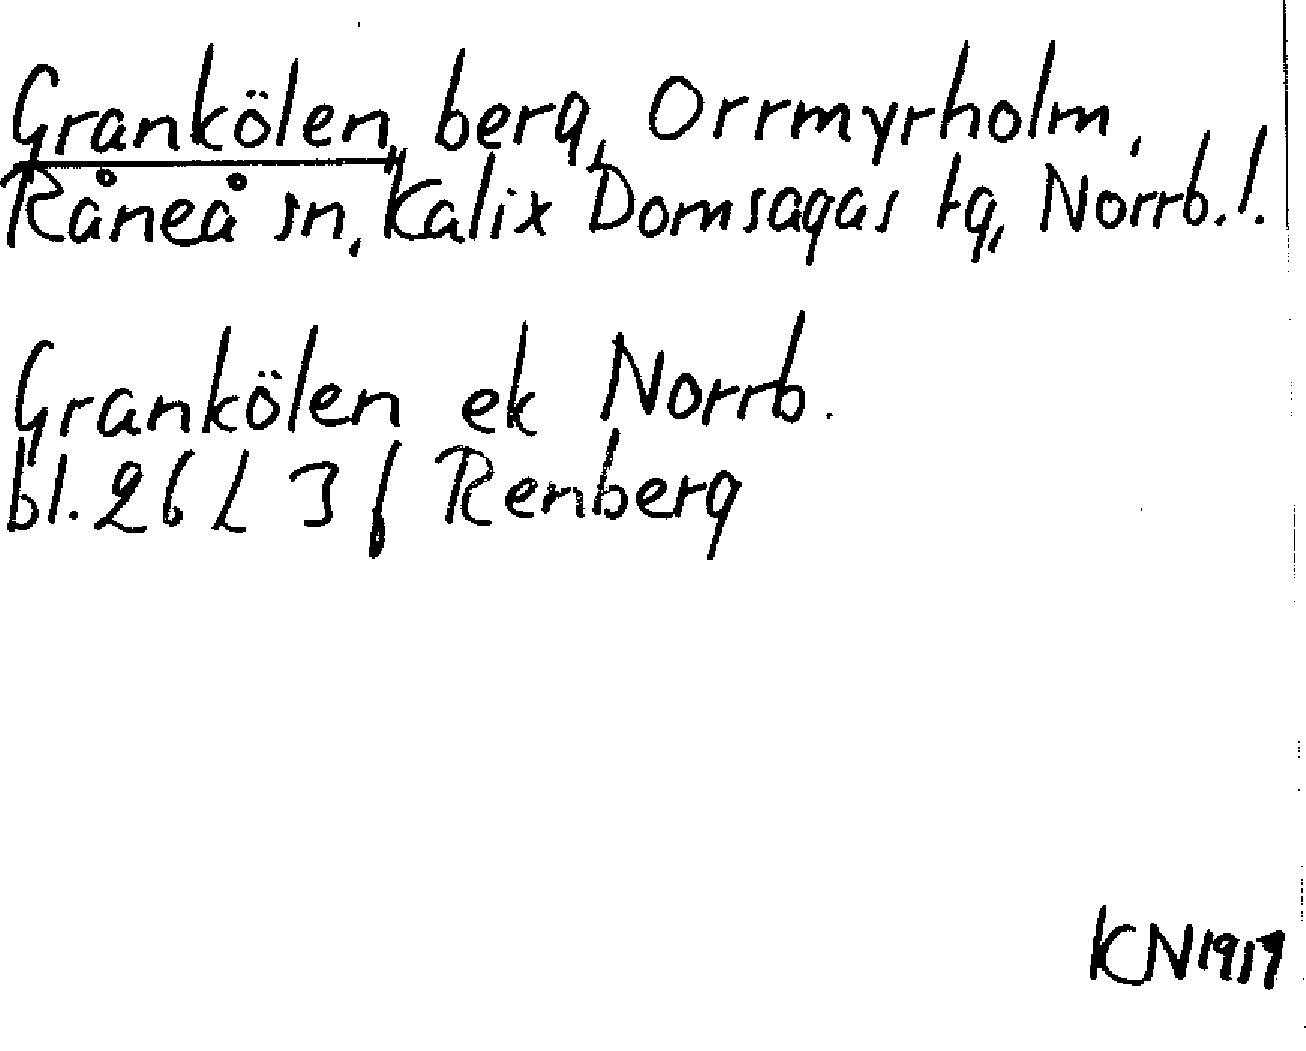 Grankölen, berg, Orrmyrholm,
Råneå sn, Kalix Domsagas tg, Norrb.l.
Grankölen ek Norrb.
bl. 26 L 3 f Renberg
KN 1919